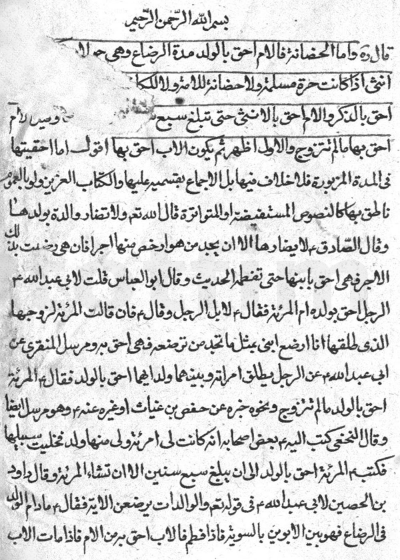 بسم الله الرحمن الرحيم
قال ره واما الحضانة فالام احق بالولد مدة الرضاع وهي حولا
انثى اذا كانت حرة مسلمة ولا حضانة للامة ولا للكا
احق بالذكر والام احق بالانثى حتى تبلغ سبع وقيل الام
احق بها مالم تتزوج والاول اظهر ثم يكون الاب احق بها اقول اما احقيتها
في المدة المزبورة فلا خلاف فيها بل الاجماع بقسميه عليها والكتاب العزيز ولو بالعموم
ناطق بها كالنصوص المستفيضة او المتواترة قال الله تع ولا تضار والدة بولدها
وقال الصادق ع لا يضارها الا ان يجد من هو ارخص منها اجرا فان هي رضيت بذلك
الاجر فهي احق بابنها حتى تفطمه الحديث وقال ابو العباس قلت لابي عبد الله ع
الرجل احق بولده ام المرئة فقال ع لا بل الرجل وقال ع فان قالت المرئة لزوجها
الذي طلقها انا ارضع ابني بمثل ما تجد من ترضعه فهي احق به ومرسل المنقري عن
ابي عبد الله ع عن الرجل يطلق امراته وبينهما ولد ايهما احق بالولد فقال ع المرئة
احق بالولد مالم تتزوج ونحوه خبره عن حفص بن غياث او غيره عنه ع وهو مرسل ايضا
وقال النخعي كتب اليه ع بعض اصحابه انه كانت لي امرئة ولي منها ولد تخليت سبيلها
فكتب ع المرئة احق بالولد الى ان يبلغ سبع سنين الا ان تشاء المرئة وقال داود
بن الحصين لابي عبد الله ع في قوله تع والوالدات يرضعن الاية فقال ع مادام الولد
في الرضاع فهو بين الابوين بالسوية فاذا فطم فالاب احق به من الام فاذا مات الاب